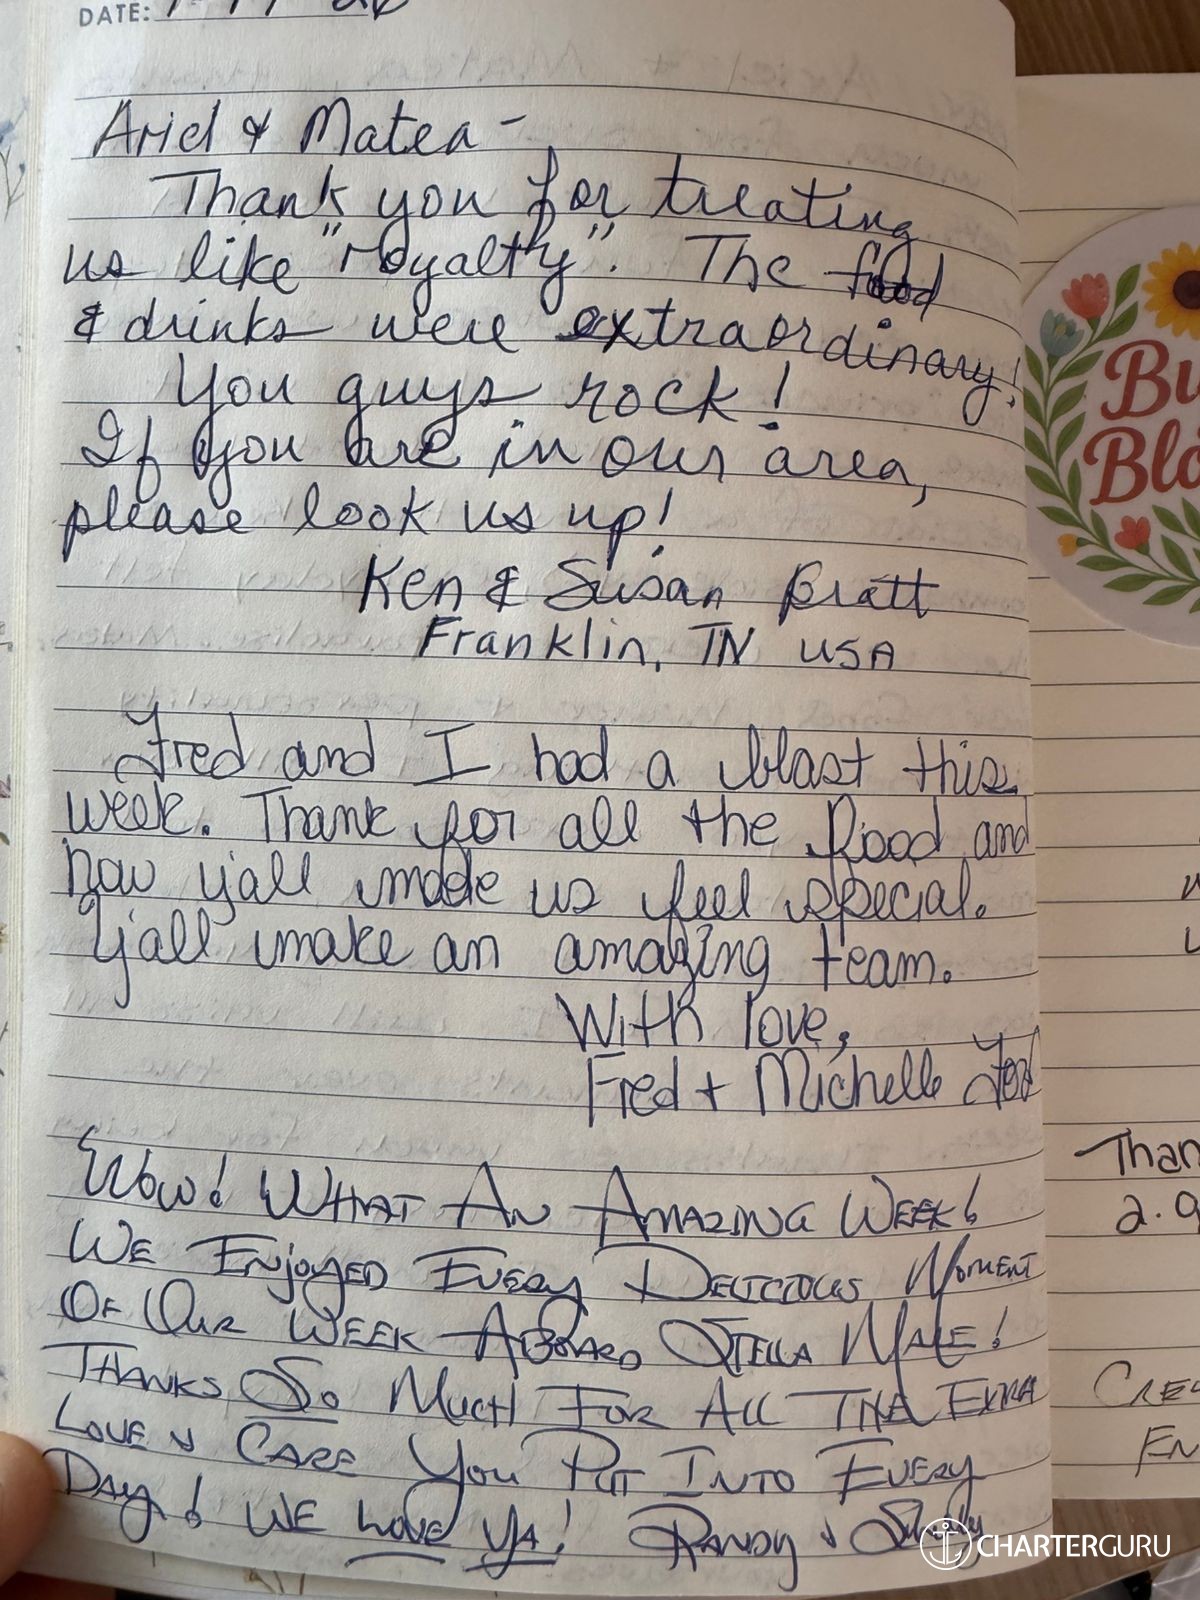 DATE:
Ariel & Matea -
Thank you for treating
us like "royalty". The food
& drinks were extraordinary!
You guys rock!
If you are in our area,
please look us up!
Ken & Susan Bratt
Franklin, TN USA
Fred and I had a blast this
week. Thank for all the food and
how y'all made us feel special.
Y'all make an amazing team.
With love,
Fred + Michelle Ford
WOW! WHAT AN AMAZING WEEK!
WE ENJOYED EVERY DELICIOUS MOMENT
OF OUR WEEK ABOARD STELLA MARE!
THANKS SO MUCH FOR ALL THE EXTRA
LOVE & CARE YOU PUT INTO EVERY
DAY! WE LOVE YA! RANDY &
Bu
Blo
Than
2.9
CREW
EN
CHARTERGURU